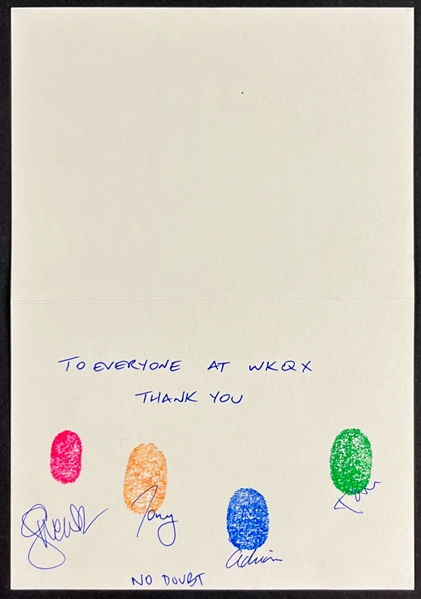 TO EVERYONE AT WKQX
THANK YOU
Tony
Adrian
NO DOUBT